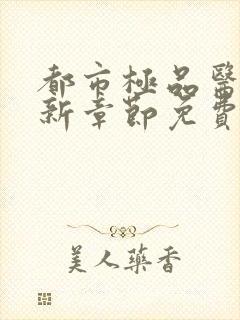 都市極品醫
新章節免費
美人藥香